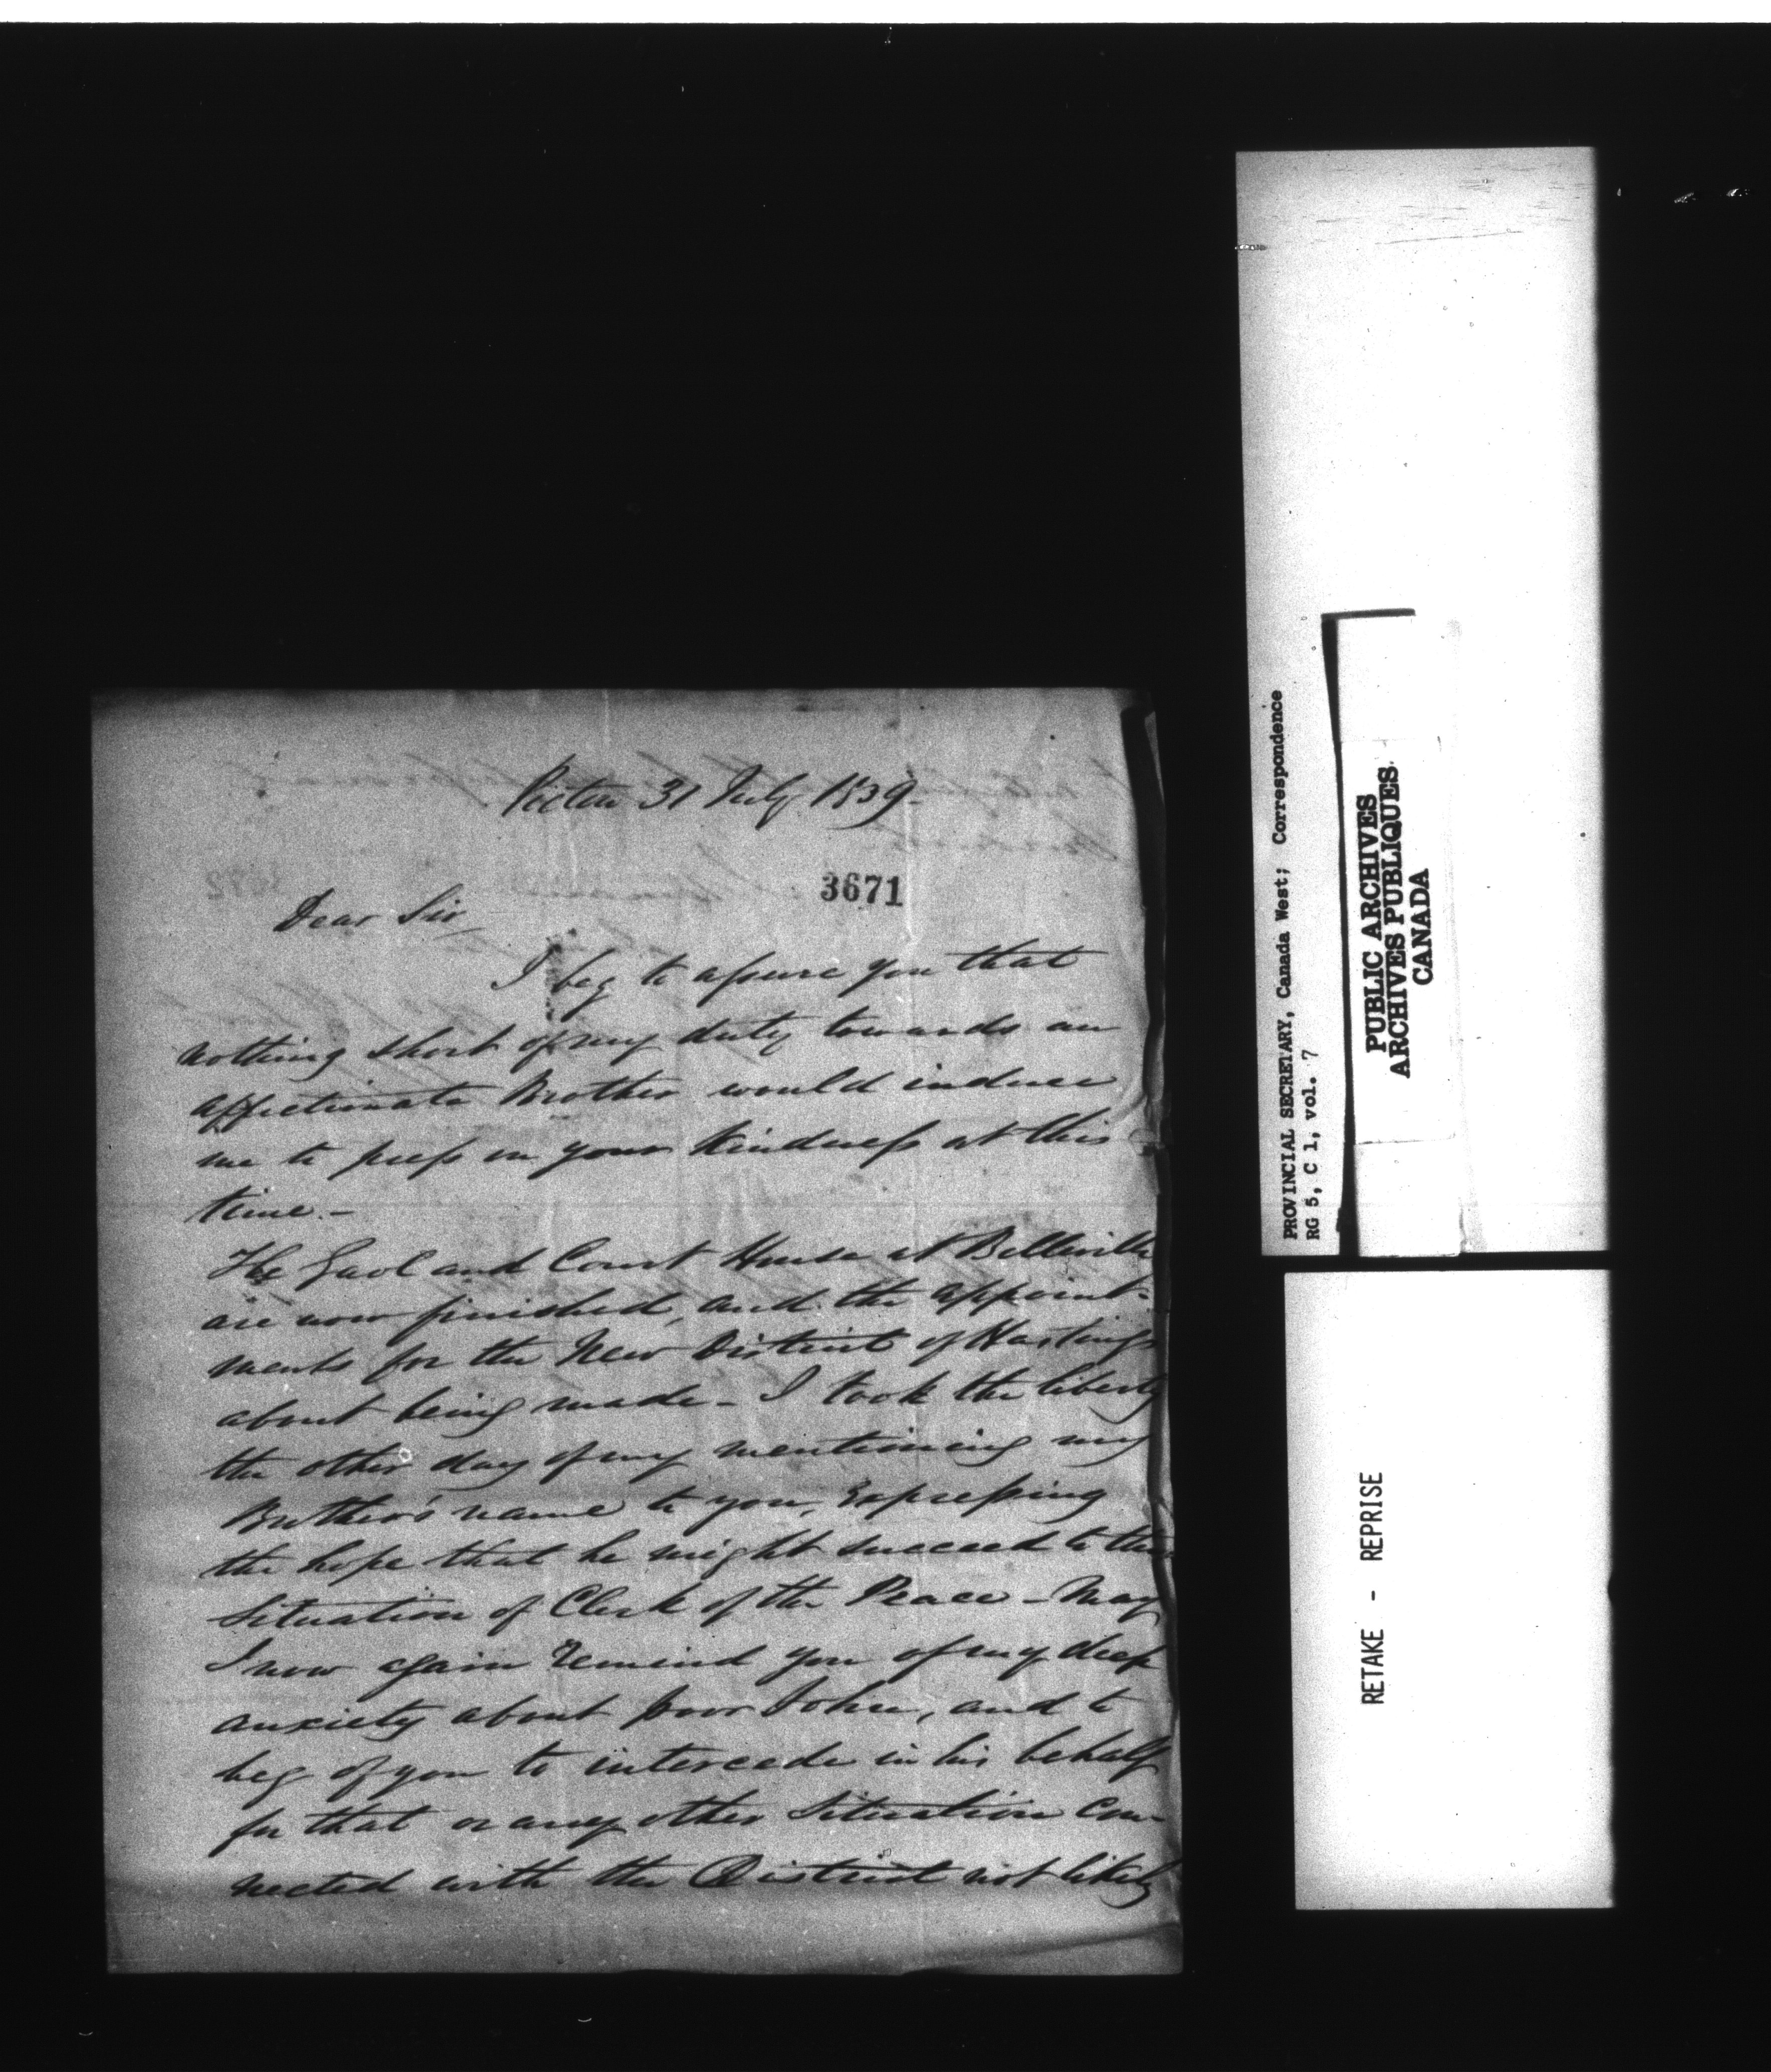 Picton 31 July 1839.
3671
Dear Sir,
I beg to assure you that
nothing short of my duty towards an
affectionate Brother would induce
me to press on your kindness at this
time.-
The Gaol and Court House at Belleville
are now finished, and the appoint-
ments for the New District of Hastings
about being made - I took the liberty
the other day of my mentioning my
Brother's name to you, expressing
the hope that he might succeed to the
Situation of Clerk of the Peace - May
I now again remind you of my deep
anxiety about poor John, and to
beg of you to intercede in his behalf
for that or any other Situation con-
nected with the District not likely
PROVINCIAL SECRETARY, Canada West; Correspondence
RG 5, C 1, vol. 7
PUBLIC ARCHIVES
ARCHIVES PUBLIQUES
CANADA
RETAKE - REPRISE